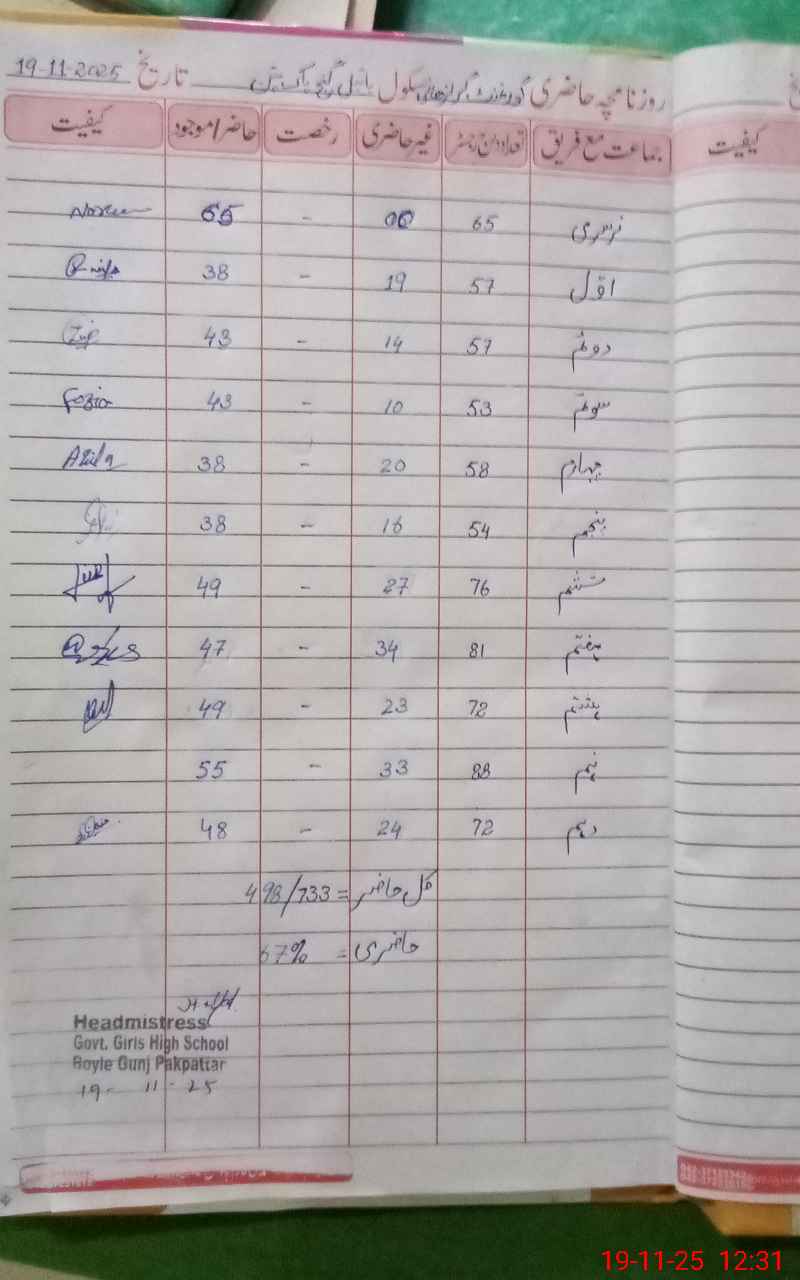 روزنامچہ حاضری گورنمنٹ گرلز ہائی سکول بائیل گنج پاکپتن تاریخ 19-11-2025
جماعت مع فریق تعداد درج رجسٹر غیر حاضری رخصت حاضر/موجود کیفیت
کیفیت
نرسری 65 00 - 65
اوّل 57 19 - 38
دوئم 57 14 - 43
سوئم 53 10 - 43 Fozia
چہارم 58 20 - 38
پنجم 54 16 - 38
ششم 76 27 - 49
ہفتم 81 34 - 47
ہشتم 72 23 - 49
نہم 88 33 - 55
دہم 72 24 - 48
کل حاضر = 498/733
حاضری = 67%
Headmistress
Govt. Girls High School
Boyle Gunj Pakpattar
19- 11 - 25
19-11-25 12:31